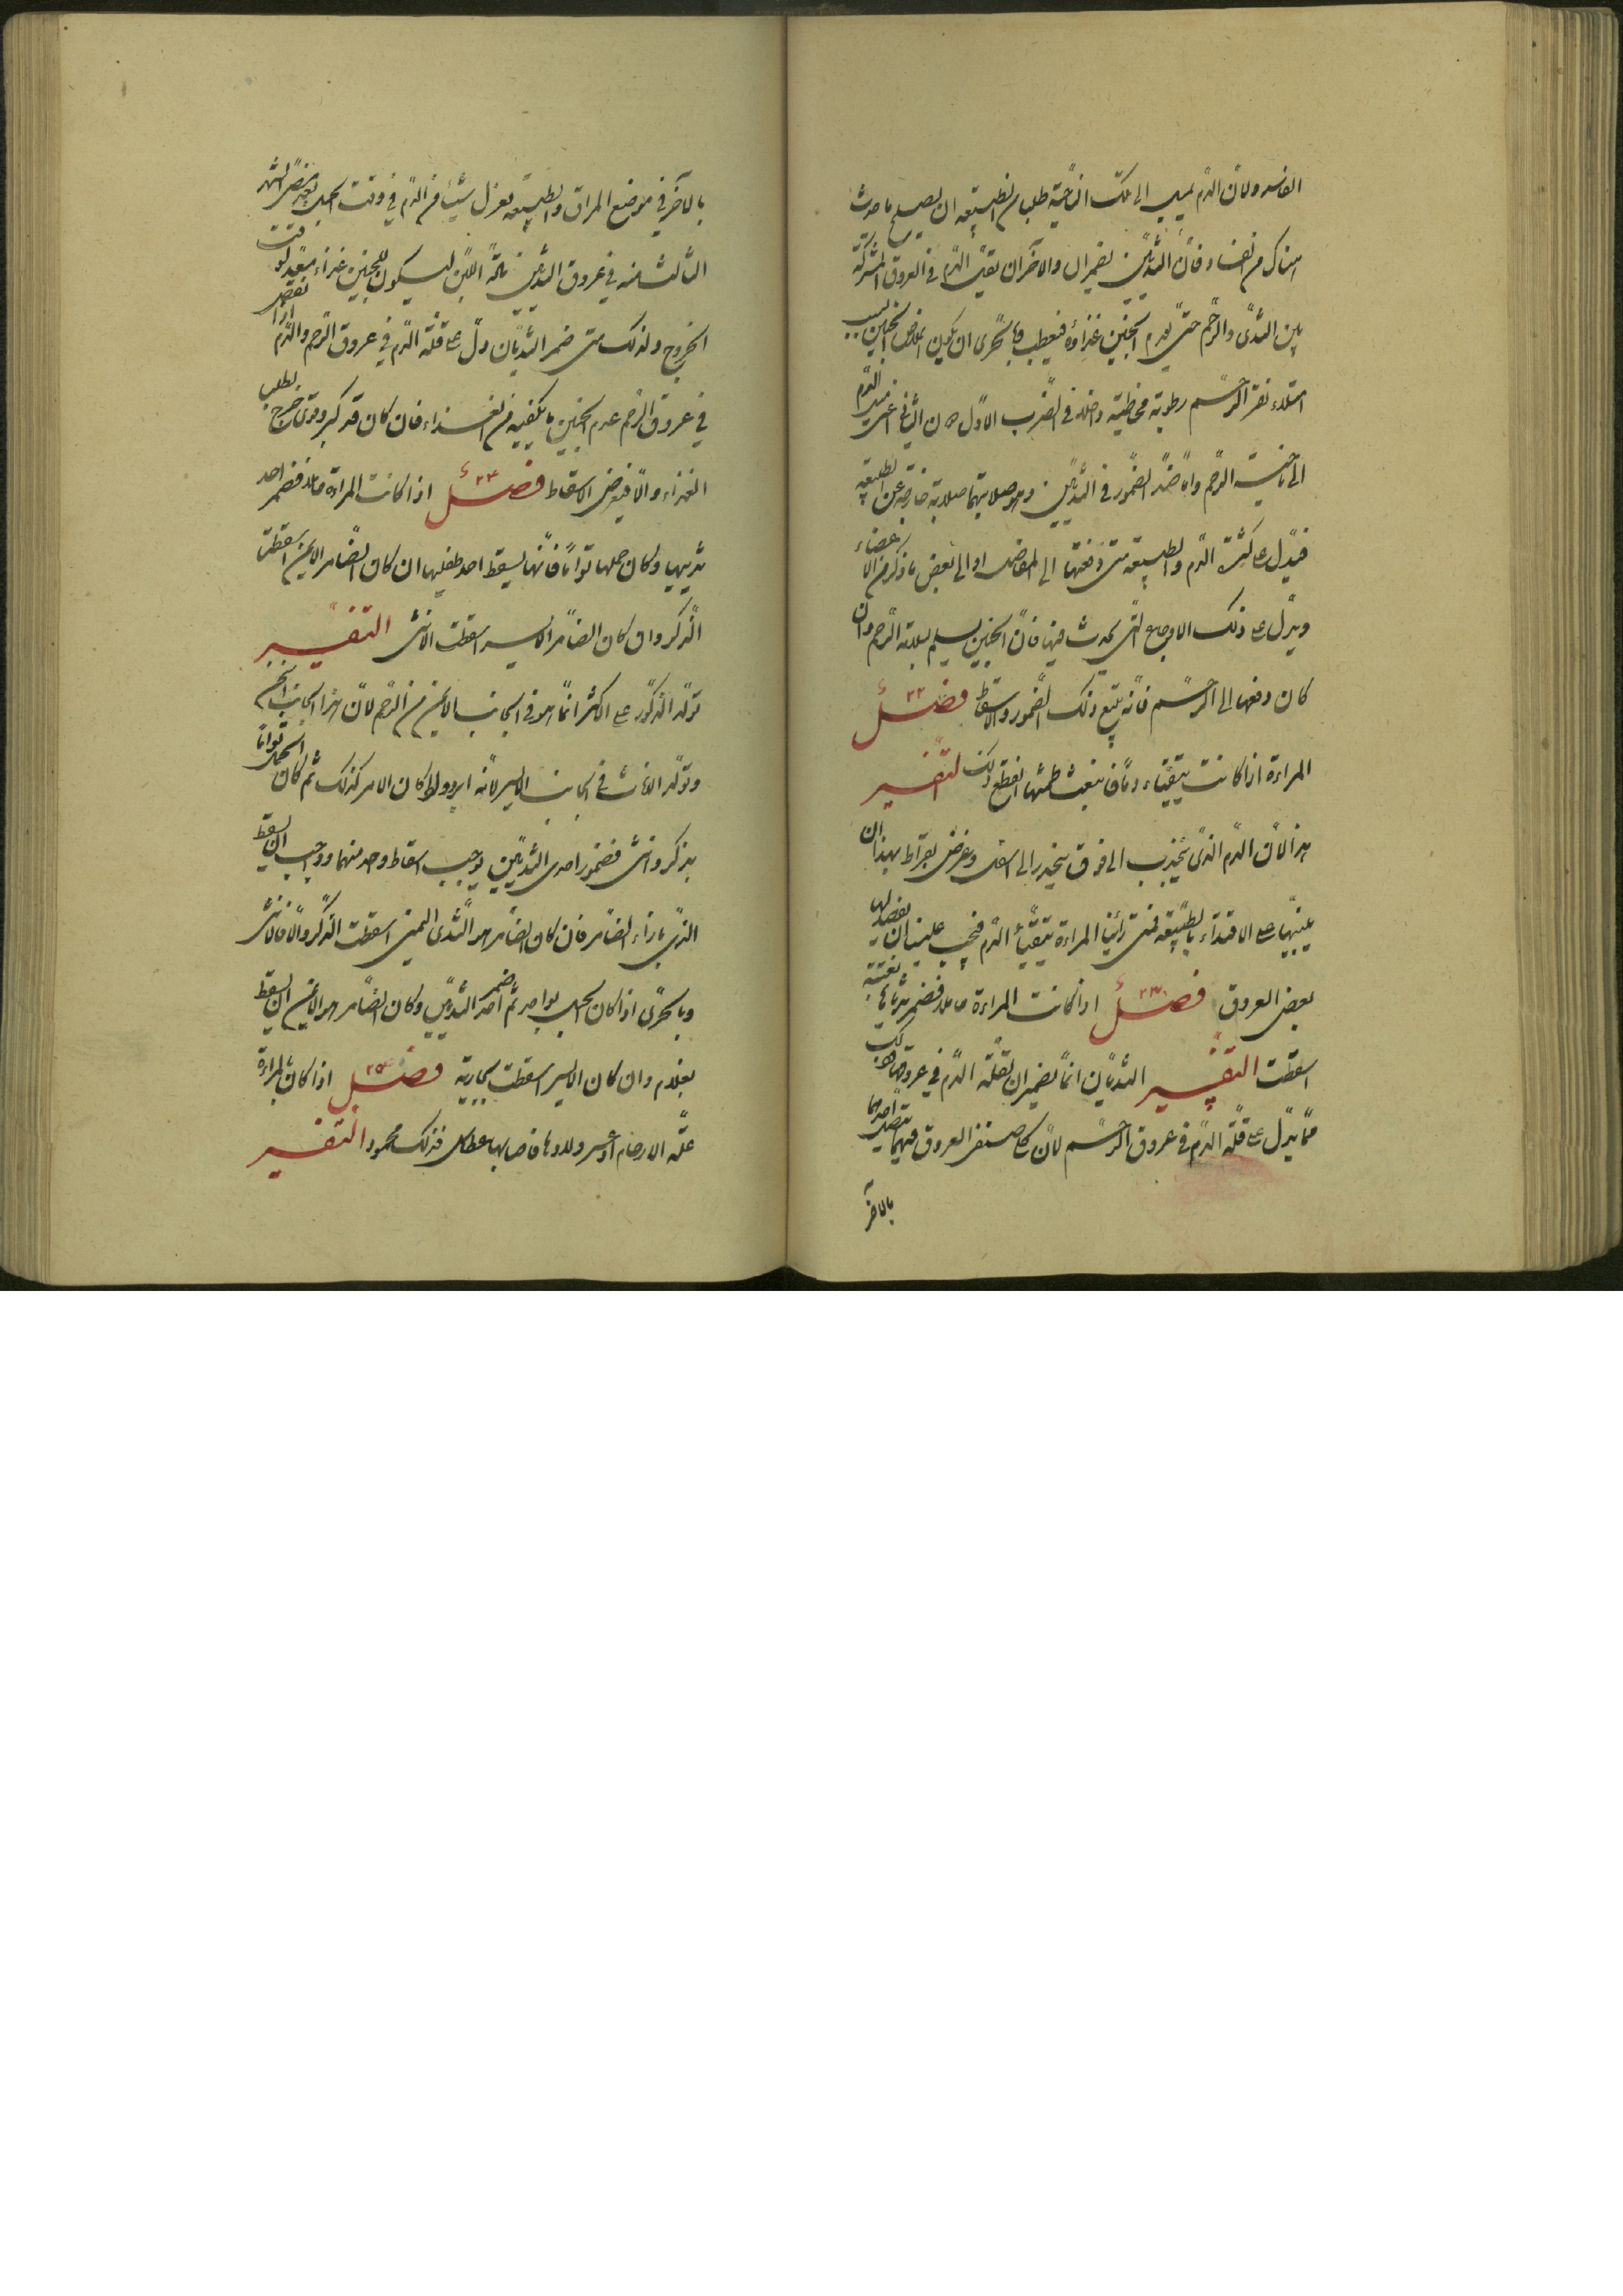 الفاسد ولان الدم يميل الى تلك الناحية طلب من الطبيعة ان يصلح ما حدث
هناك من الفساد فان الثديين يضمران والاخران يقل الدم في العروق المشتركة
بين الثدى والرحم حتى يعدم الجنين غذاؤه فيعطب وبالحرى ان يكون الجنين بسبب
امتلاء نقر الرحم رطوبة مخاطية داخلة في الضرب الاول من الثانى اعنى ميل الدم
الى ناحية الرحم واما ضد الضمور في الثديين وهو صلابتهما صلابة خارجة عن الطبيعة
فيدل على كثرة الدم والطبيعة متى دفعتها الى المفاصل او الى بعض ما ذكر من الاعضاء
ويدل على ذلك الاوجاع التى يحدث فيها فان الجنين يسلم بسلامة الرحم وان
كان دفعها الى الرحم فانه يتبع ذلك الضمور والاسقاط فصل ٢٢
المراءة اذا كانت يتقياء دما فانبعث طمثها انقطع ذلك التفسير
هذا لان الدم الذى ينجذب الى فوق ينحدر الى اسفل وغرض بقراط بهذا ان
ينبهنا على الاقتداء بالطبيعة فمتى رأينا المراءة يتقيأ الدم فيجب علينا ان نفصد لها
بعض العروق فصل ٢٣ اذا كانت المراءة حاملا فضمر ثدياها بغتة
اسقطت التفسير الثديان انما يضمران لقلة الدم في عروقهما وذلك
مما يدل على قلة الدم في عروق الرحم لان كل صنف العروق فيهما يتصل احدهما
بالاخر
بالاخر في موضع المراق والطبيعة تعزل شيئا من الدم في وقت الحبل بعد مضى الشهر
الثالث منه في عروق الثديين مادة اللبن ليكون للجنين غذاء معدا لوقت
الخروج ولذلك متى ضمر الثديان دل على قلة الدم في عروق الرحم والدم اذا نقص
في عروق الرحم عدم الجنين ما يكفيه من الغذاء فان كان قد كبر وقوى خرج لطلب
الغذاء والا فيعرض الاسقاط فصل ٢٤ اذا كانت المراءة حاملا فضمر احد
ثدييها وكان حملها تواما فانها يسقط احد طفليها ان كان الضامر الايمن اسقطت
الذكر وان كان الضامر الايسر اسقطت الانثى التفسير
تولد الذكور على الاكثر انما هو في الجانب الايمن من الرحم لان هذا الجانب اسخن
وتولد الاناث في الجانب الايسر لانه ابرد ولما كان الامر كذلك ثم كان الحمل تواما
بذكر وانثى فضمور احدى الثديين يوجب اسقاط واحد منهما ووجب ان يسقط
الذى بازاء الضامر فان كان الضامر هو الثدى اليمنى اسقطت الذكر والا فالانثى
وبالحرى اذا كان الحبل بواحد ثم ضمر احد الثديين وكان الضامر هو الايمن ان يسقط
بغلام وان كان الايسر اسقطت بجارية فصل ٢٥ اذا كان بالمراءة
علة الارحام او عسر ولادها فاصابها عطاس فذلك محمود التفسير